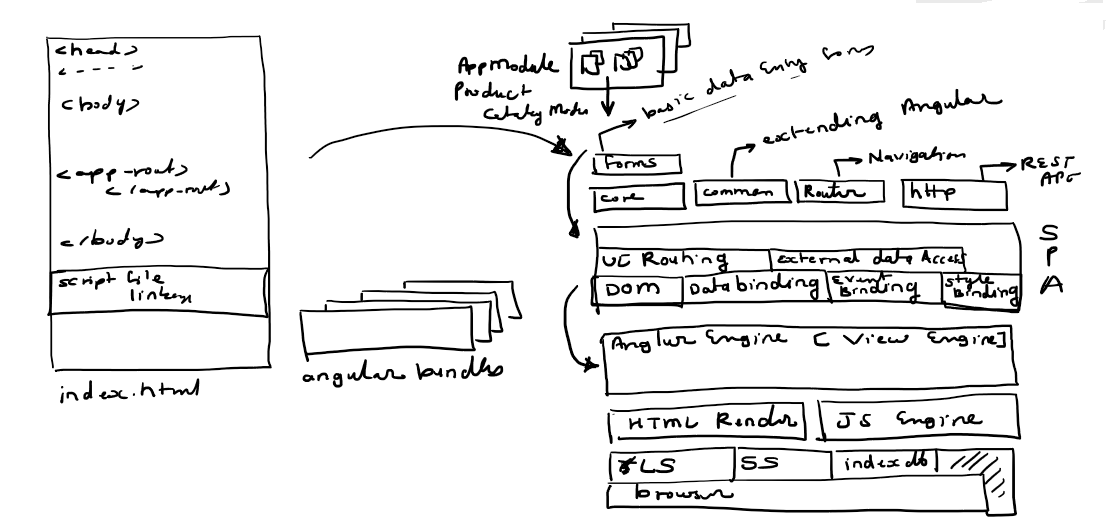 <head>
<---->
<body>
<app-root>
</app-root>
</body>
script file
linkers
index.html
angular bundles
AppModule
Product
Catalog Module
basic data Entry forms
extending Angular
Navigation
REST
API
forms
core
common
Router
http
UI Routing
external data Access
DOM
Databinding
Event
Binding
style
Binding
S
P
A
Anglur Engine [ View Engine]
HTML Render
JS Engine
LS
SS
indexdb
browser